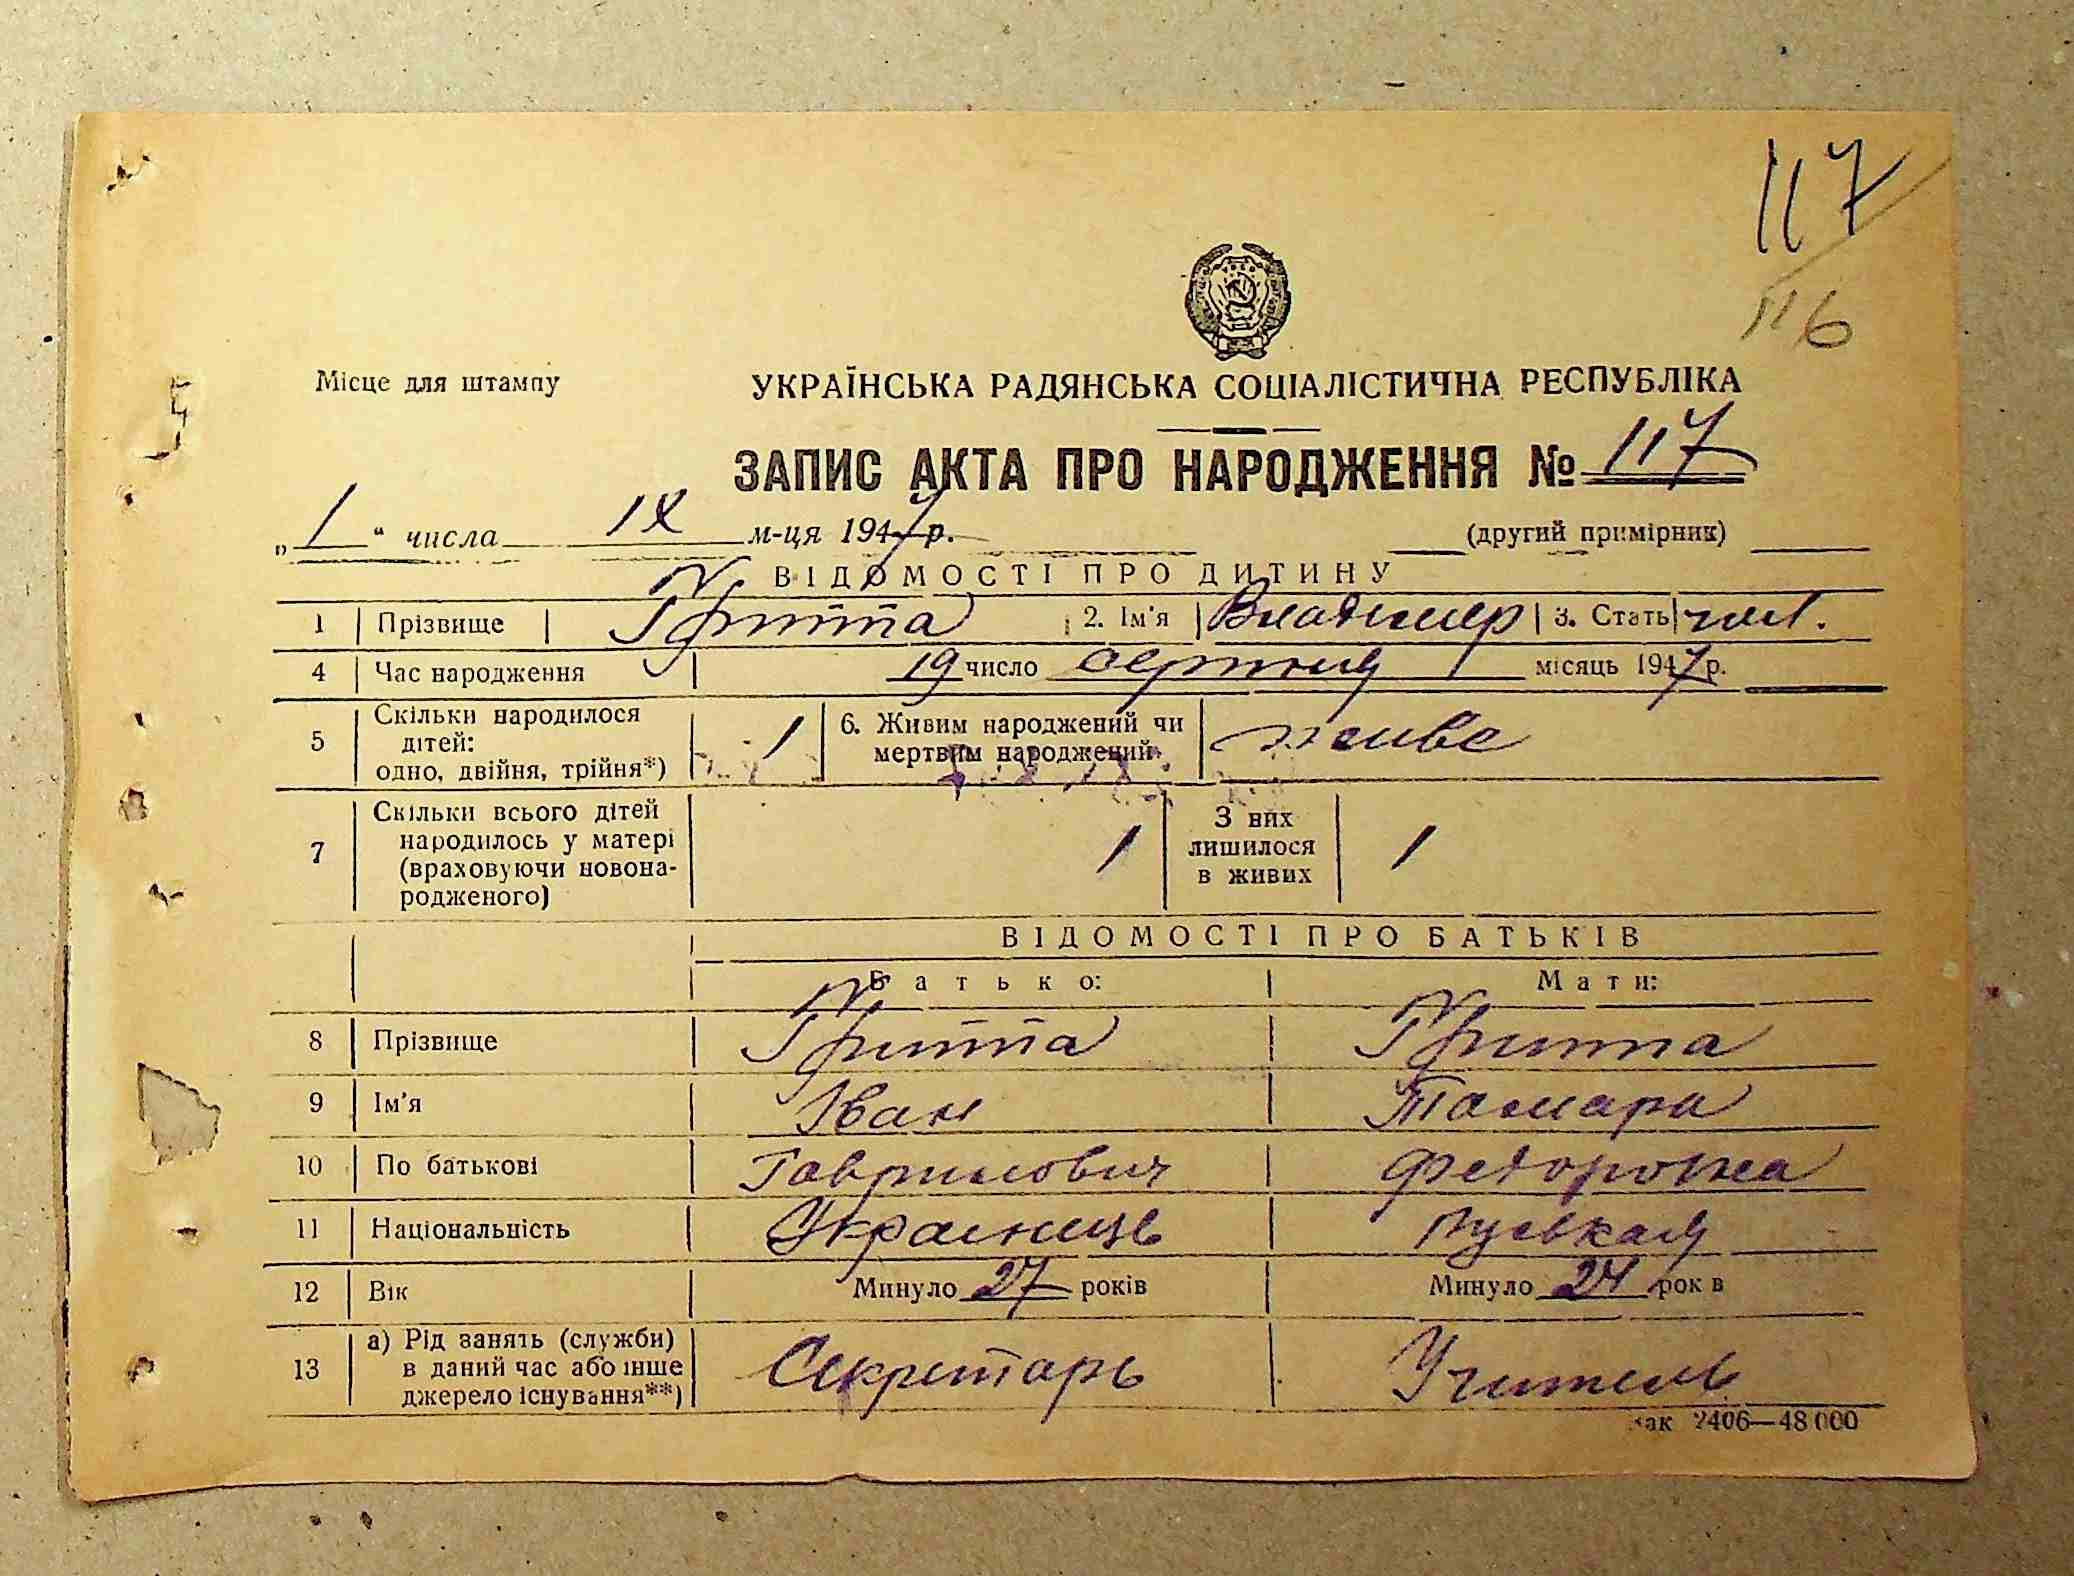 117
116
Місце для штампу
УКРАЇНСЬКА РАДЯНСЬКА СОЦІАЛІСТИЧНА РЕСПУБЛІКА
ЗАПИС АКТА ПРО НАРОДЖЕННЯ № 117
„1“ числа IX м-ця 1947 р. (другий примірник)
ВІДОМОСТІ ПРО ДИТИНУ
1 Прізвище 2. Ім'я Владимир 3. Стать чол.
4 Час народження 19 число серпня місяць 1947 р.
5 Скільки народилося дітей: одно, двійня, трійня*) 1 6. Живим народжений чи мертвим народжений живе
7 Скільки всього дітей народилось у матері (враховуючи новонародженого) 1 З них лишилося в живих 1
ВІДОМОСТІ ПРО БАТЬКІВ
Батько: Мати:
8 Прізвище
9 Ім'я Іван Тамара
10 По батькові Гаврилович Федоровна
11 Національність Українець Руськая
12 Вік Минуло 27 років Минуло 24 рок в
13 а) Рід занять (служби) в даний час або інше джерело існування**) Секретарь Учитель
Зак 2406—48 000